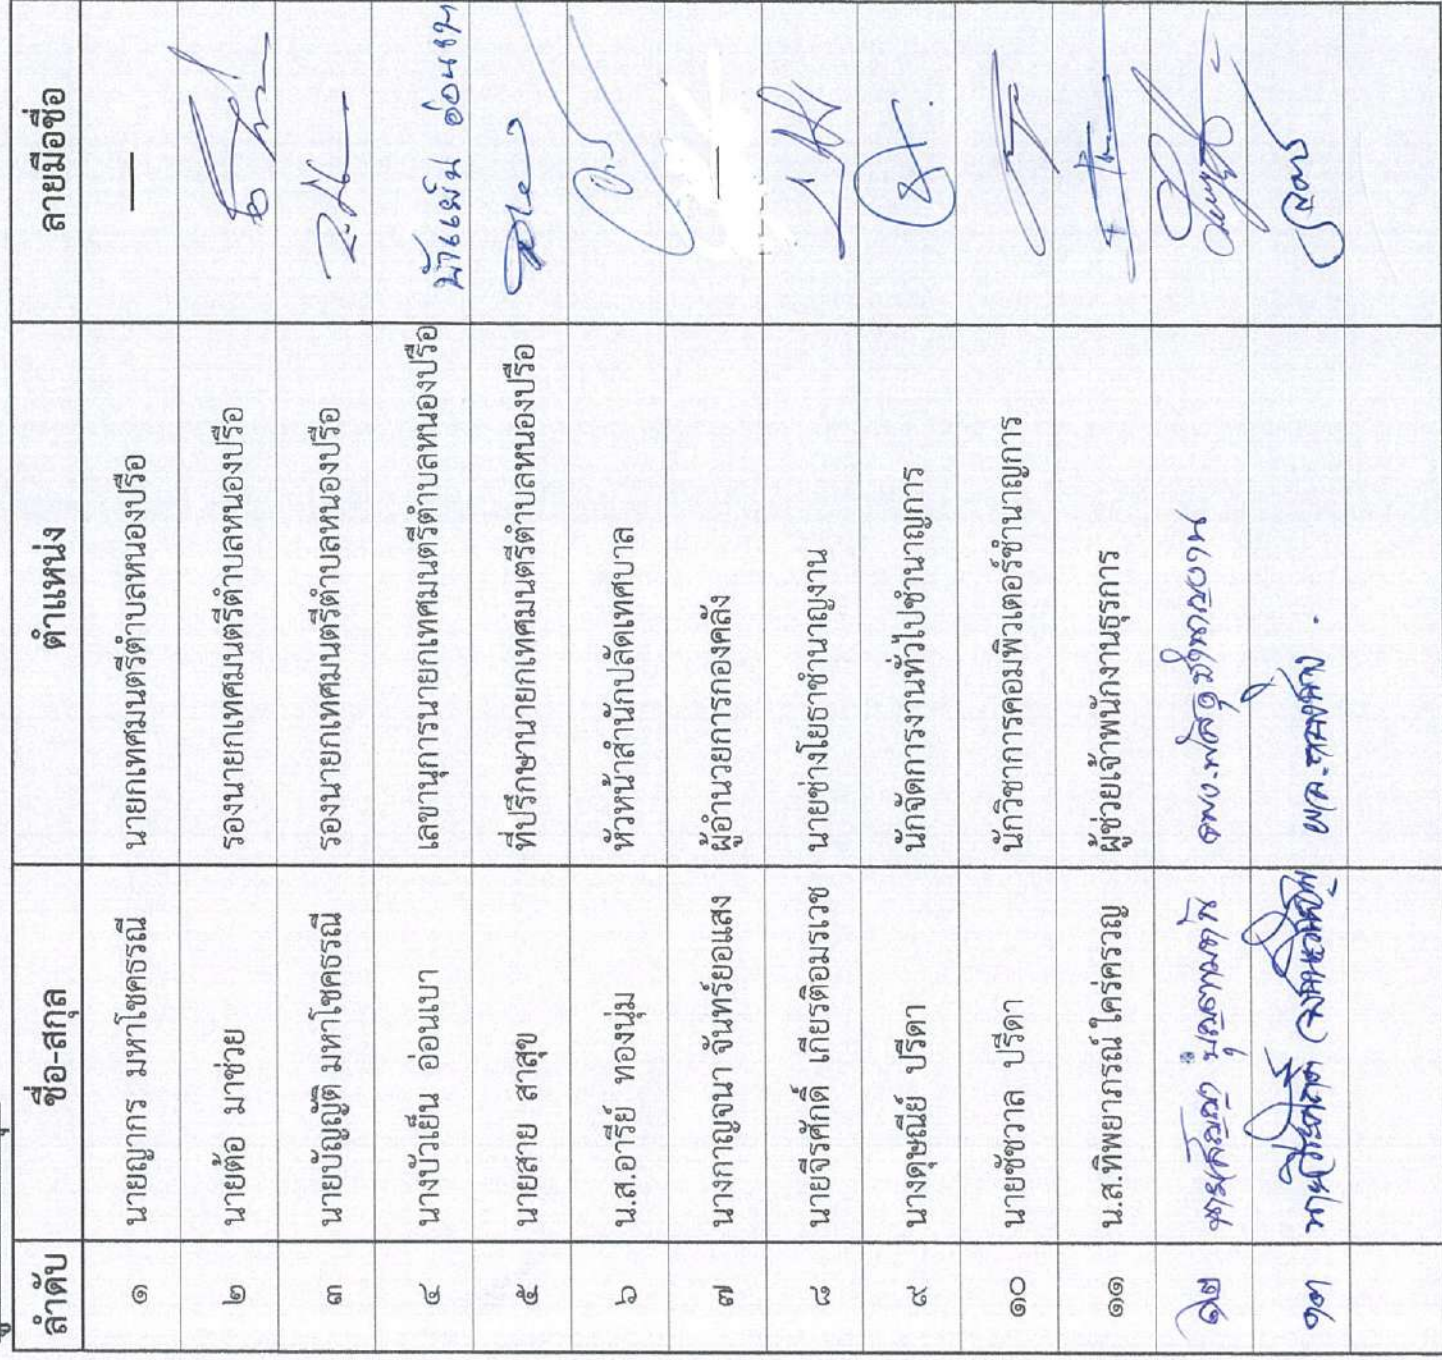 ลำดับ ชื่อ-สกุล ตำแหน่ง ลายมือชื่อ
๑ นายญากร มหาโชคธรณี นายกเทศมนตรีตำบลหนองปรือ —
๒ นายต้อ มาช่วย รองนายกเทศมนตรีตำบลหนองปรือ
๓ นายบัญญัติ มหาโชคธรณี รองนายกเทศมนตรีตำบลหนองปรือ
๔ นางบัวเย็น อ่อนเบา เลขานุการนายกเทศมนตรีตำบลหนองปรือ
๕ นายสาย สาสุข ที่ปรึกษานายกเทศมนตรีตำบลหนองปรือ
๖ น.ส.อารีย์ ทองนุ่ม หัวหน้าสำนักปลัดเทศบาล
๗ นางกาญจนา จันทร์ยอแสง ผู้อำนวยการกองคลัง —
๘ นายจีรศักดิ์ เกียรติอมรเวช นายช่างโยธาชำนาญงาน
๙ นางดุษณีย์ ปรีดา นักจัดการงานทั่วไปชำนาญการ
๑๐ นายชัชวาล ปรีดา นักวิชาการคอมพิวเตอร์ชำนาญการ
๑๑ น.ส.ทิพยาภรณ์ ใคร่ครวญ ผู้ช่วยเจ้าพนักงานธุรการ
๑๒
๑๓